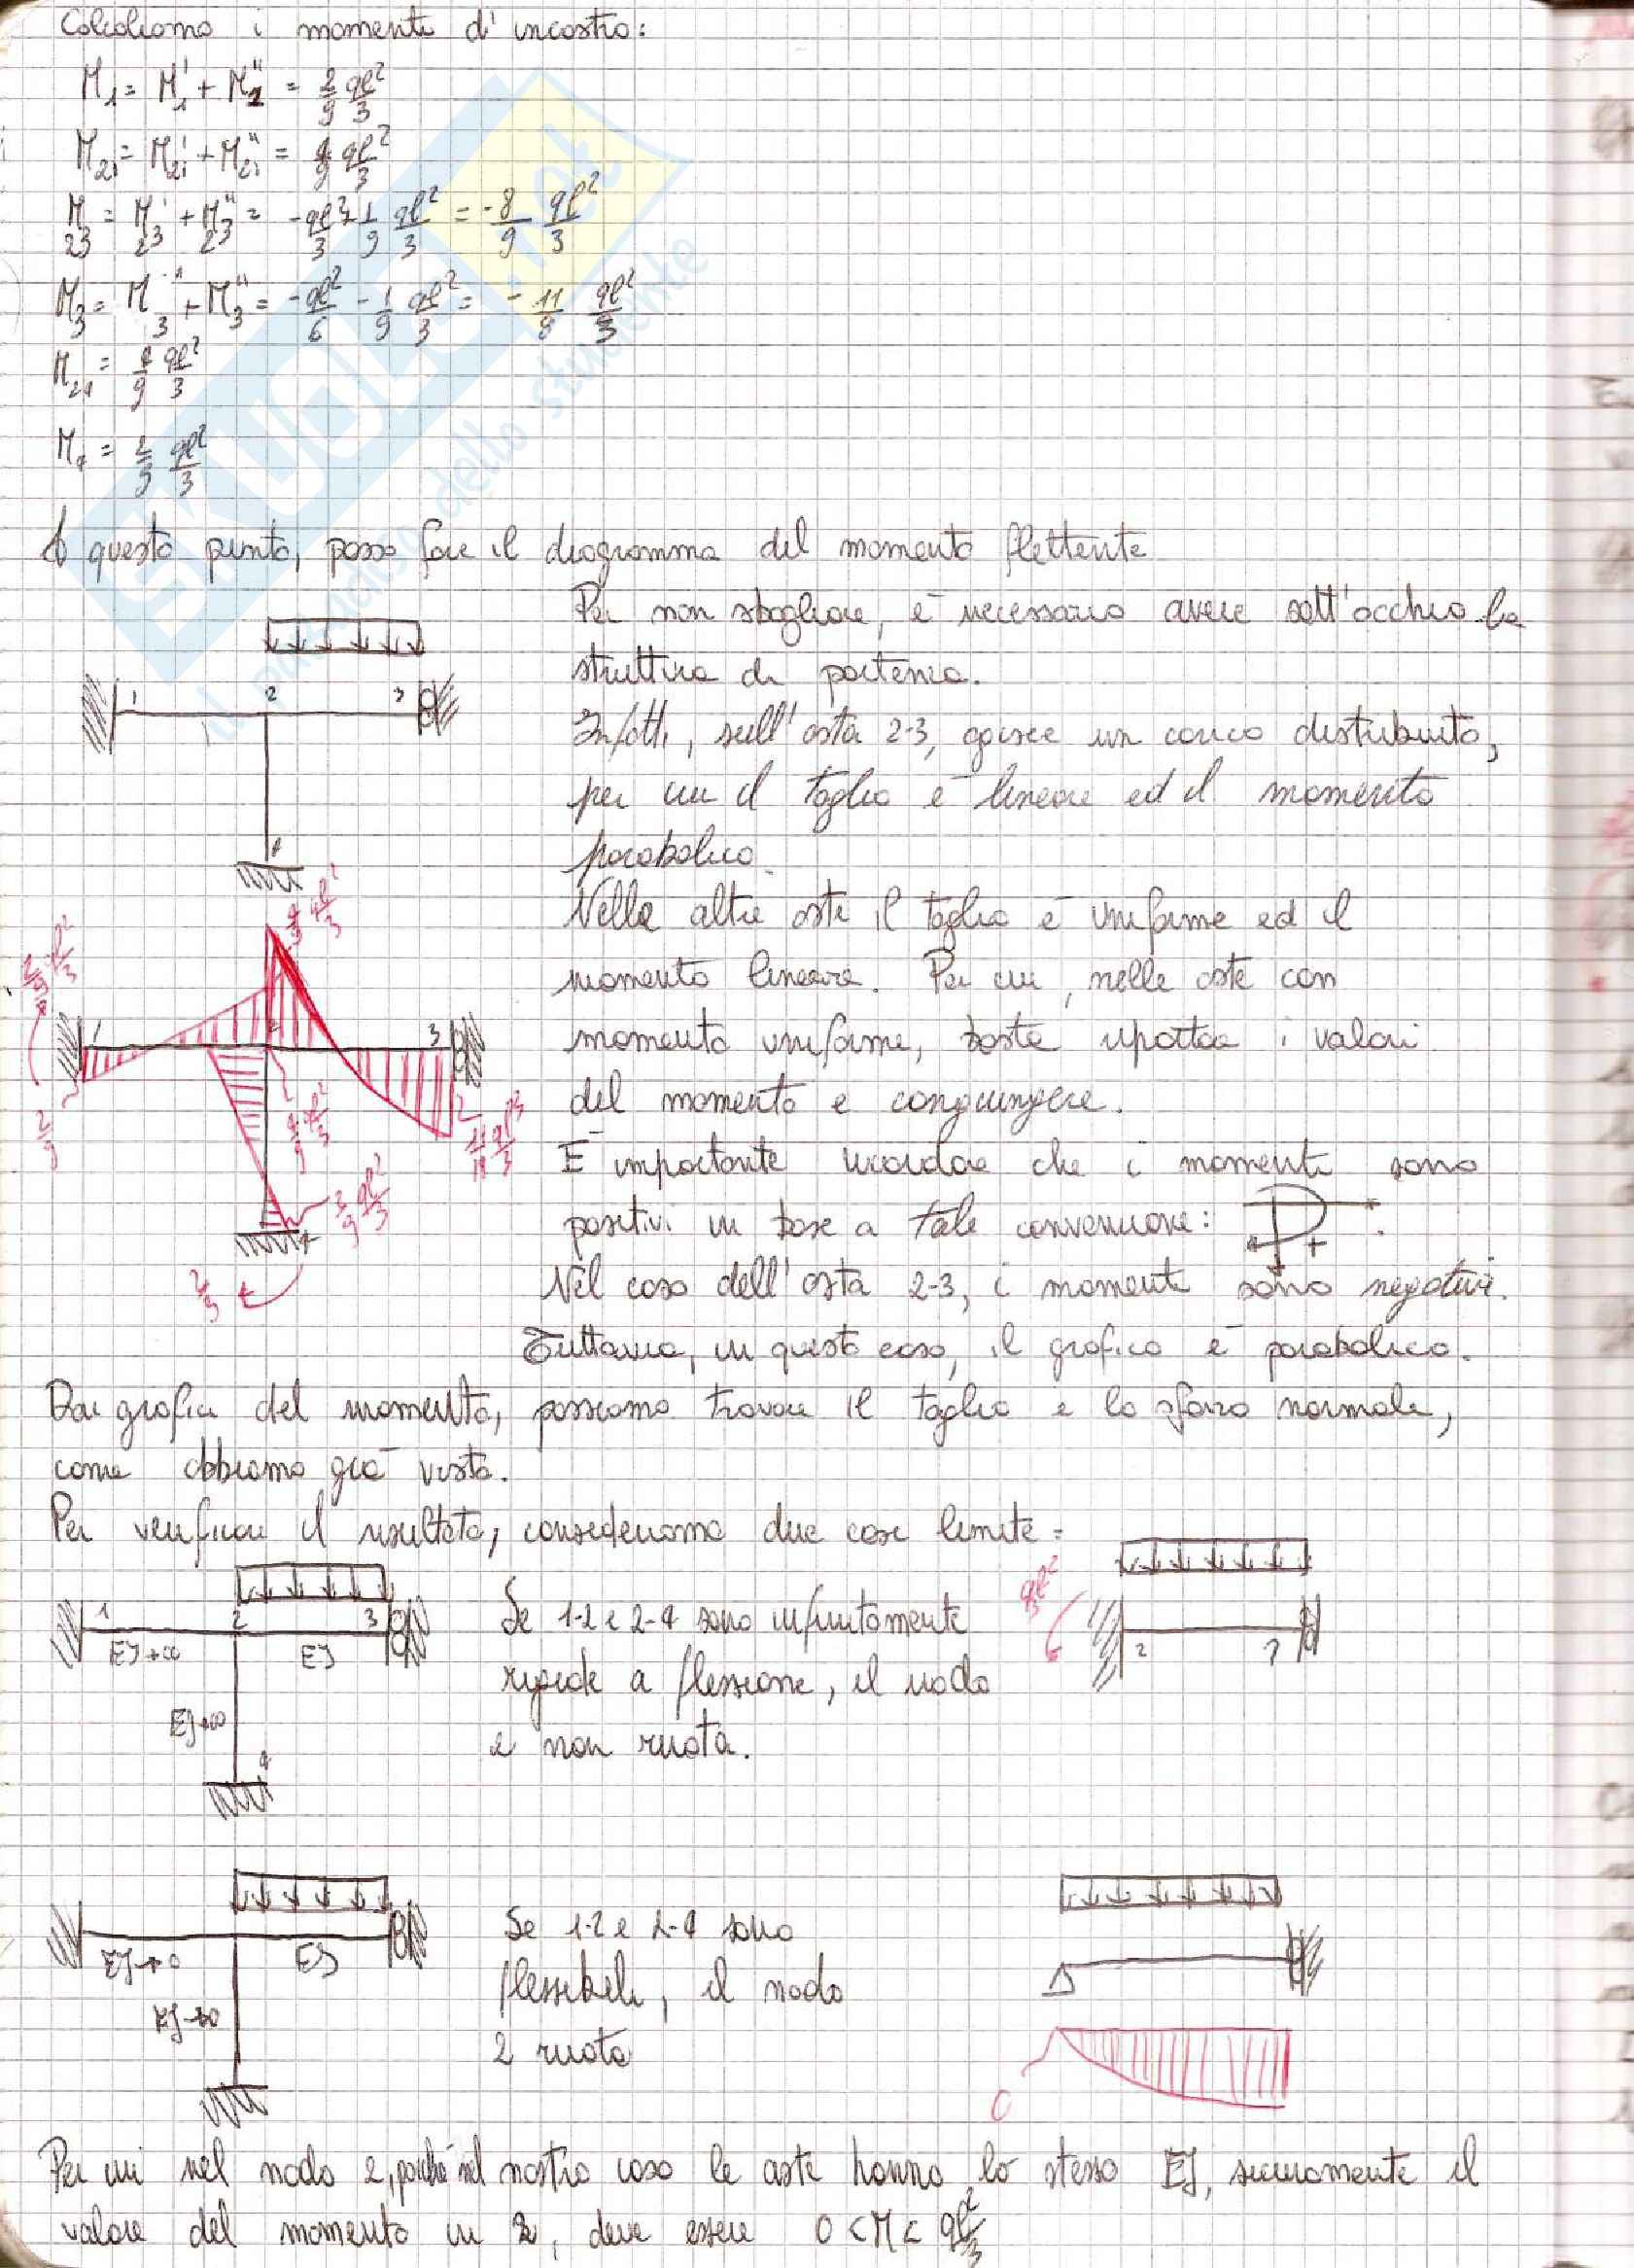 Calcoliamo i momenti d'incastro:
M₁ = M₁' + M₁'' = 2/9 ql²/3
M₂₁ = M₂₁' + M₂₁'' = 4/9 ql²/3
M₂₃ = M₂₃' + M₂₃'' = -ql²/3 + 1/9 ql²/3 = -8/9 ql²/3
M₃ = M₃' + M₃'' = -ql²/6 - 1/9 ql²/3 = - 11/8 ql²/3
M₂₄ = 4/9 ql²/3
M₄ = 2/9 ql²/3
A questo punto, posso fare il diagramma del momento flettente
Per non sbagliare, è necessario avere sott'occhio la
struttura di partenza.
1 2 3
Infatti, sull'asta 2-3, agisce un carico distribuito,
per cui il taglio è lineare ed il momento
parabolico.
4
Nelle altre aste il taglio è uniforme ed il
momento lineare. Per cui, nelle aste con
momento uniforme, basta riportare i valori
del momento e congiungere.
È importante ricordare che i momenti sono
positivi in base a tale convenzione: +
Nel caso dell'asta 2-3, i momenti sono negativi.
Tuttavia, in questo caso, il grafico è parabolico.
2/9 ql²/3
1 3
4/9 ql²/3
11/18
2/9
Dai grafici del momento, possiamo trovare il taglio e lo sforzo normale,
come abbiamo già visto.
Per verificare il risultato, consideriamo due casi limite:
1 2 3
EJ→∞ EJ
EJ→∞
4
Se 1-2 e 2-4 sono infinitamente
rigide a flessione, il nodo
2 non ruota.
ql²/3
2 3
EJ→0 EJ
EJ→0
Se 1-2 e 2-4 sono
flessibili, il nodo
2 ruota
0
Per cui nel nodo 2, poiché nel nostro caso le aste hanno lo stesso EJ, sicuramente il
valore del momento in 2, deve essere 0 < M < ql²/3
SKUOLA.net
il paradiso dello studente